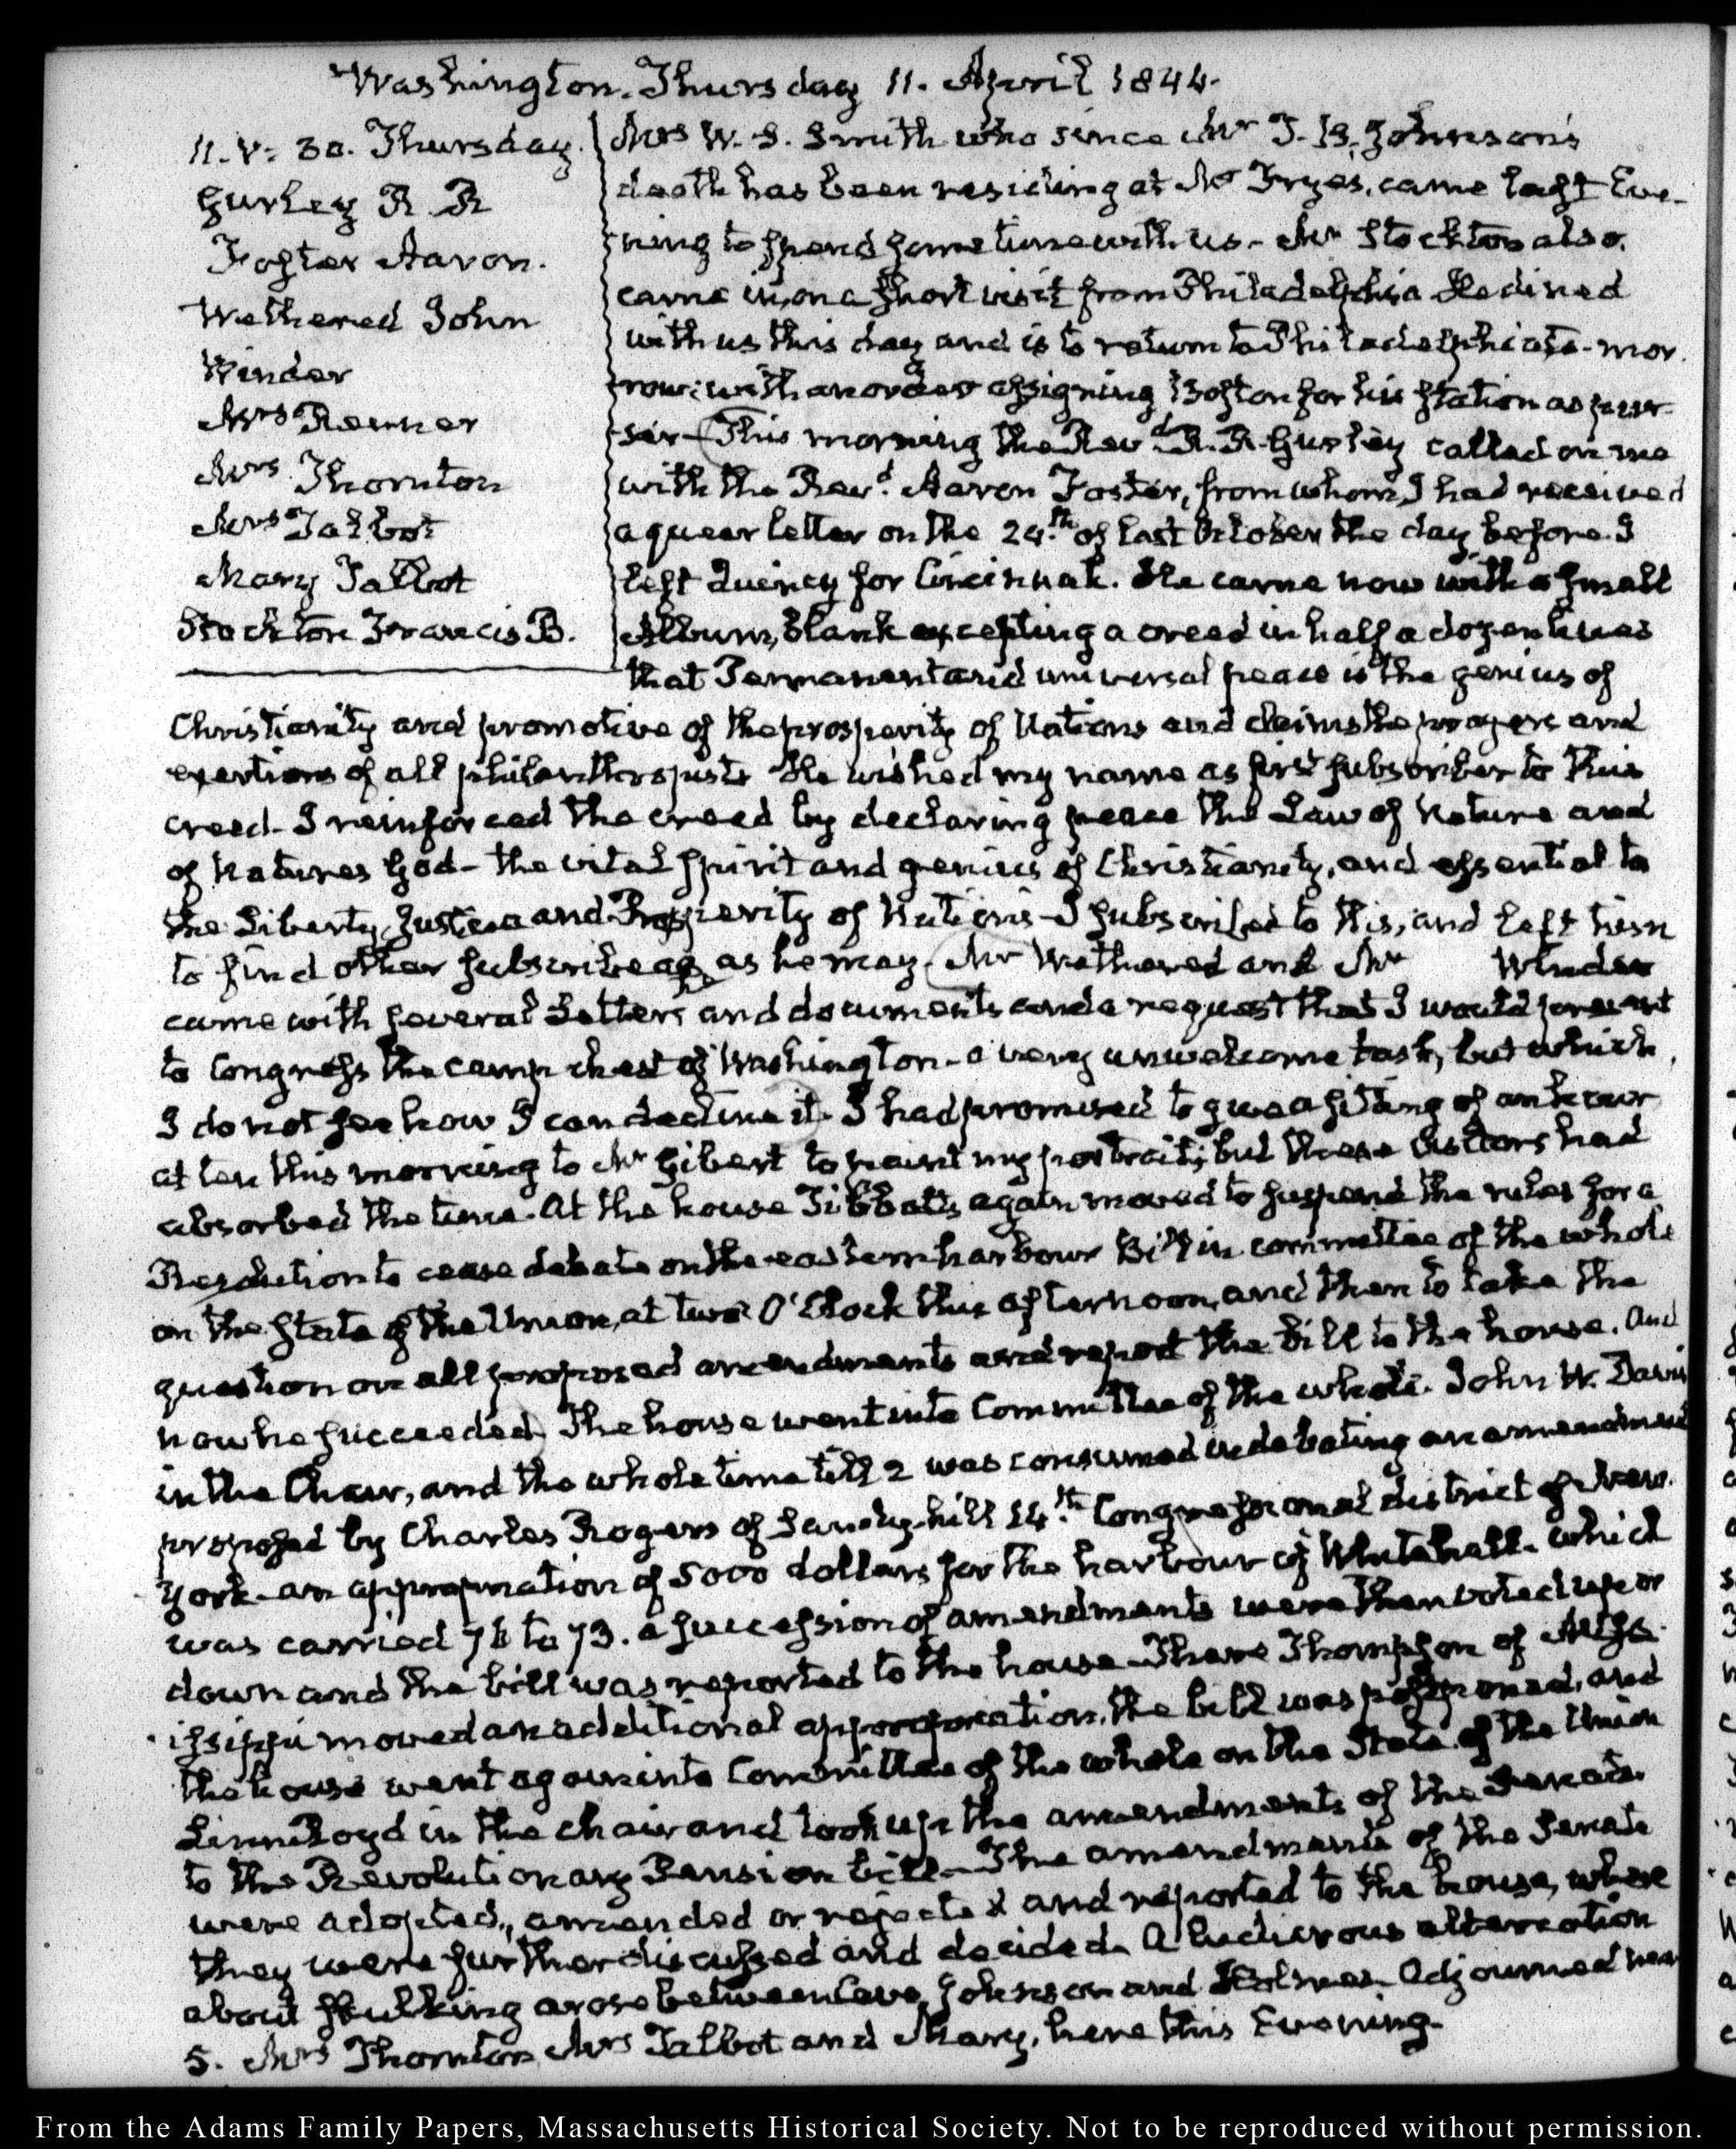 Washington. Thursday 11. April 1844.
11. V: 30. Thursday.
Gurley R. R
Foster Aaron.
Wethered John
Winder
Mrs Renner
Mrs Thornton
Mrs Talbot
Mary Talbot
Stockton Francis B.
Mrs W. S. Smith who since Mr T. B. Johnson's
death has been residing at Mr Fryes, came last Eve-
ning to spend some time with us- Mr Stockton also.
came in, on a short visit from Philadelphia He dined
with us this day and is to return to Philadelphia to-mor
row: with an order assigning Boston for his station as pur-
ser- This morning the Revd. R. R. Gurley called on me
with the Revd. Aaron Foster, from whom, I had received
a queer letter on the 24.th of last October the day before I
left Quincy for Cincinnati. He came now with a small
Album, blank excepting a creed in half a dozen lines
that Permanent and universal peace is the genius of
Christianity and promotive of the prosperity of Nations and claims the prayers and
exertions of all philanthropists He wished my name as first subscriber to this
creed- I reinforced the creed by declaring peace the Law of Nature and
of Natures God- the vital spirit and genius of Christianity, and essential to
the Liberty, Justice and Prosperity of Nations- I subscribed to this, and left him
to find other subscribers as he may. Mr Wethered and Mr Winder
came with several Letters and documents and a request that I would present
to Congress the camp chest of Washington- a very unwelcome task, but which
I do not see how I can decline it. I had promised to give a sitting of an hour
at ten this morning to Mr Gibert to paint my portrait; but these visitors had
absorbed the time. At the house Tibbatts again moved to suspend the rules for a
Resolution to cease debate on the eastern harbour Bill in committee of the whole
on the state of the Union, at two O'Clock this afternoon, and then to take the
question on all proposed amendments and report the bill to the house. And
now he succeeded. The house went into Committee of the whole. John W. Davis
in the Chair, and the whole time till 2 was consumed in debating an amendment
proposed by Charles Rogers of Sandy-hill 14.th Congressional district of New
York- an appropriation of 5000 dollars for the harbour of Whitehall- which
was carried 76 to 73. a succession of amendments were then voted up or
down and the bill was reported to the house- There Thompson of Miss-
issippi moved an additional appropriation, the bill was postponed, and
the house went again into Committee of the whole on the State of the Union
Linn Boyd in the chair and took up the amendments of the Senate
to the Revolutionary Pension bill- The amendments of the Senate
were adopted, amended or rejected and reported to the house, where
they were further discussed and decided. A ludicrous altercation
about skulking arose between Cave Johnson and Holmes. Adjourned near
5. Mrs Thornton Mrs Talbot and Mary, here this Evening.
From the Adams Family Papers, Massachusetts Historical Society. Not to be reproduced without permission.